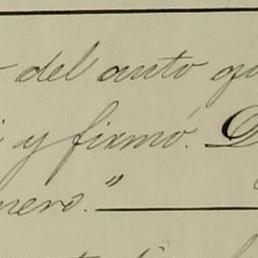 del auto qu
y firmó. D
nero."